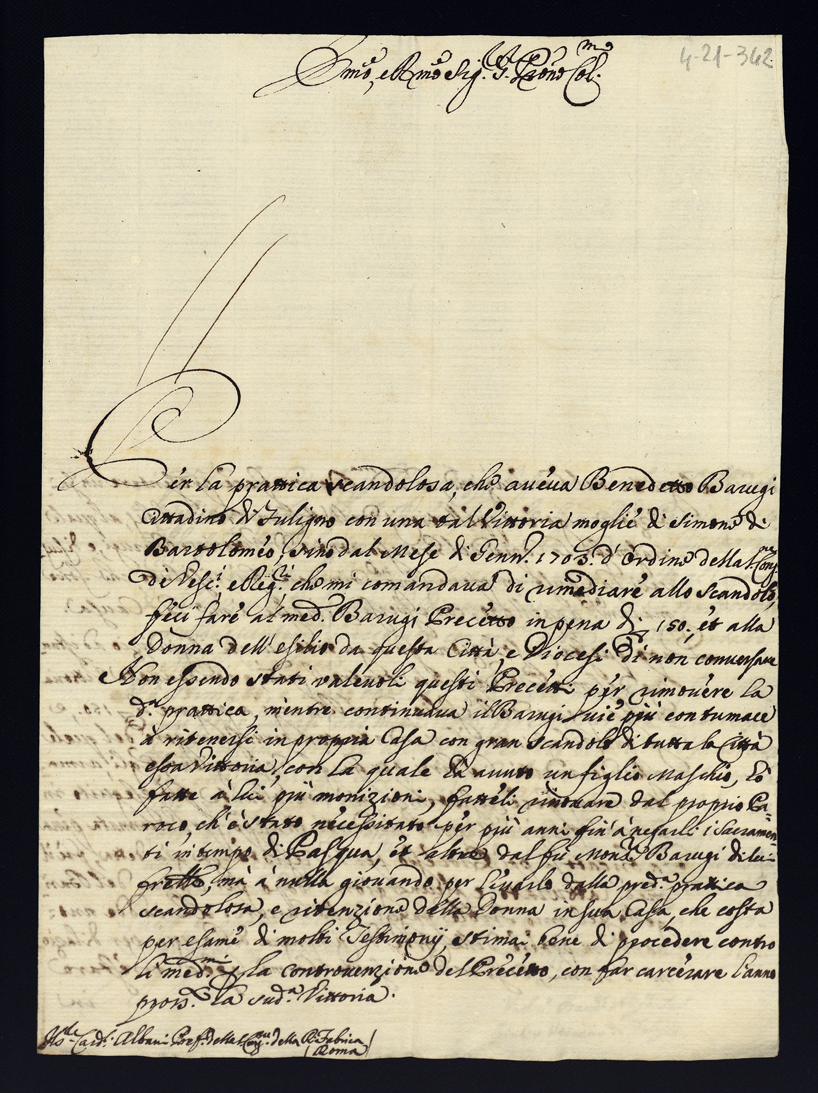 4-21-342
Em̃o, e Rmõ Sig. P. Prõne Col.mo
Per la prattica scandolosa, che aveva Benedetto Barugi
Cittadino di Fuligno con una tal Vittoria moglie di Simone di
Bartolomeo, sino dal Mese di Genn.o 1703. d'Ordine della Cong.ne
di Vesc.i e Reg.ri che mi comandava di rimediare allo scandolo,
feci fare al med.o Barugi Precetto in pena di 150, et alla
Donna dell'esilio da questa Città, e Diocesi di non conversare
Non essendo stati valevoli questi Precetti per rimovere la
d.a prattica, mentre continuava il Barugi vie più contumace
à ritenersi in propria Casa con gran scandolo di tutta la Città
essa Vittoria, con la quale hà avuto un figlio Maschio, hò
fatte à lui più monizioni, fatteli rinovare dal proprio Pa=
roco, ch'è stato necessitato per più anni fin'à negarli i Sacramen=
ti in tempo di Pasqua, et altre dal fù Mons.r Barugi di lui
frello, mà à nulla giovando per levarlo dalla pred.a prattica
scandolosa, e ritenzione della Donna in sua Casa, che costa
per esame di molti Testimonij, stimai bene di procedere contro
li med.mi p la controvenzione del Precetto, con far carcerare l'anno
pross.o la sud.a Vittoria.
Card. Albani Pref. della Cong.ne della R. Fabrica
(Roma)